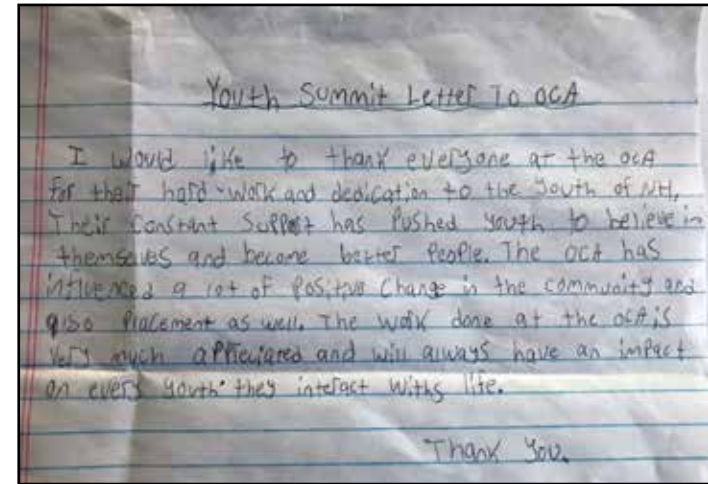 Youth Summit Letter To OCA
I would like to thank everyone at the OCA
for their hard-work and dedication to the youth of NH.
Their Constant Support has Pushed youth to believe in
themselves and become better People. The OCA has
influenced a lot of Positive Change in the community and
also Placement as well. The work done at the OCA is
very much appreciated and will always have an impact
on every youth they interact withs life.
Thank You.